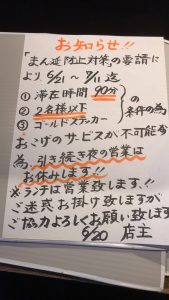 お知らせ!!
「まん延防止対策」の要請に
より 6/21～7/11迄
① 滞在時間 90分
② 2名様以下
③ ゴールドステッカー
}の条件の為
おこげのサービスが不可能な
為、引き続き夜の営業は
お休みします!!
※ランチは営業致します!!
ご迷惑お掛け致しますが
ご協力よろしくお願い致します
6/20 店主